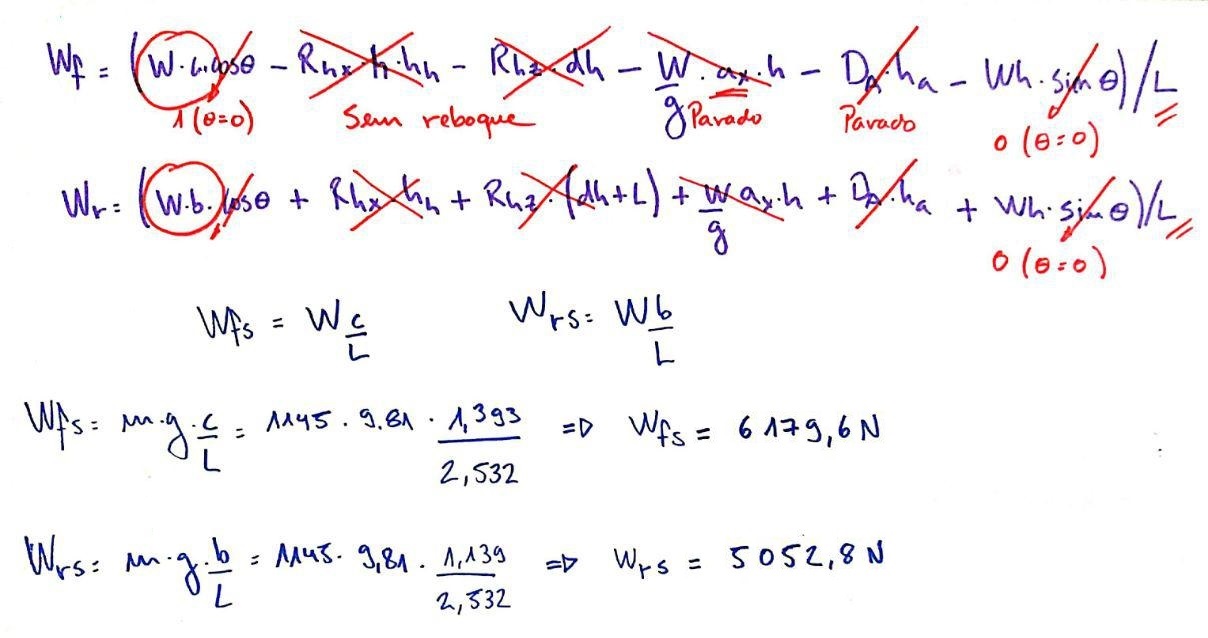 Wf = (W·c·cosθ − Rhx·h·hh − Rhz·dh − W/g·ax·h − DA·ha − Wh·sinθ)/L
1 (θ=0) Sem reboque Parado Parado 0 (θ=0)
Wr = (W·b·cosθ + Rhx·hh + Rhz·(dh+L) + W/g ax·h + DA·ha + Wh·sinθ)/L
0 (θ=0)
Wfs = W c/L Wrs = W b/L
Wfs = m·g·c/L = 1145 · 9.81 · 1,393/2,532 => Wfs = 6179,6 N
Wrs = m·g·b/L = 1145 · 9,81 · 1,139/2,532 => Wrs = 5052,8 N